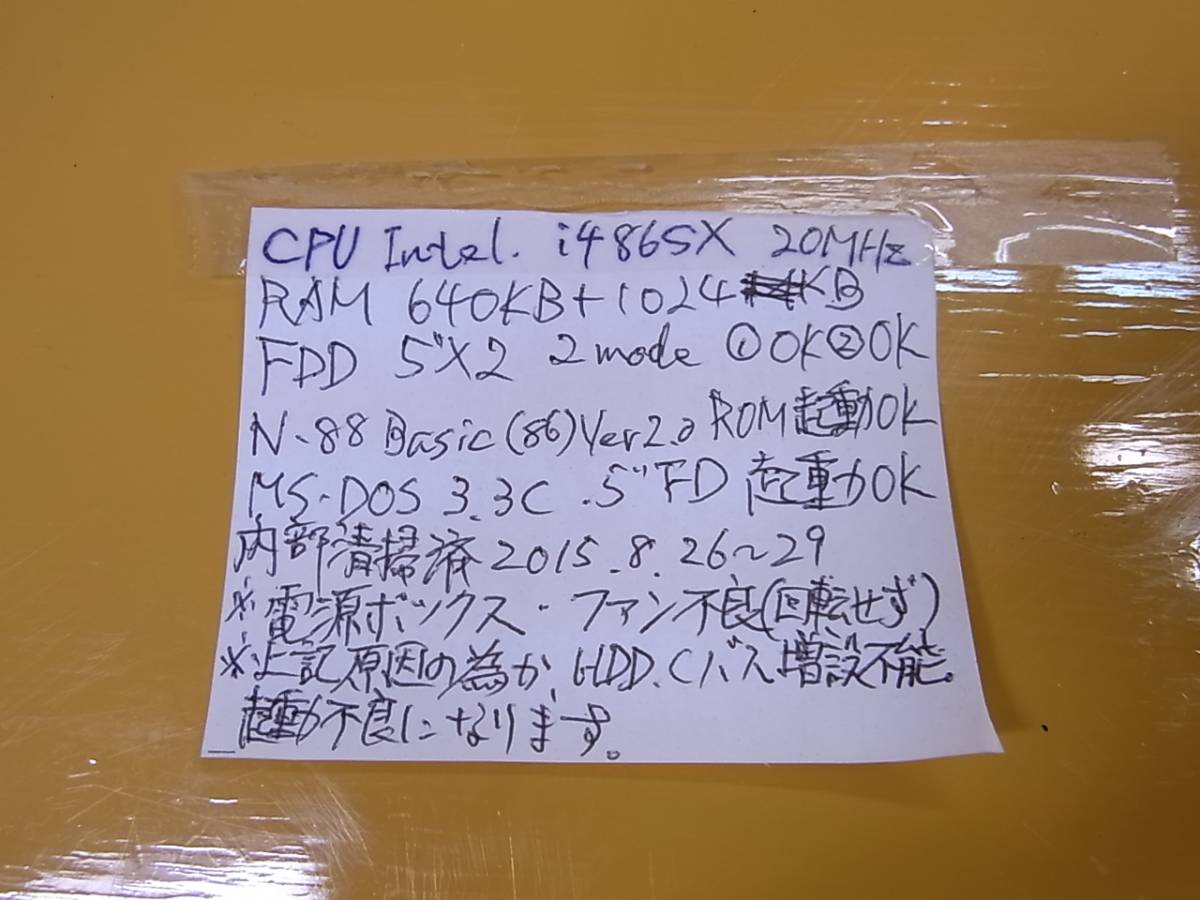 CPU Intel. i486SX 20MHz
RAM 640KB+1024KB
FDD 5"×2 2mode ①OK②OK
N-88 Basic(86)Ver2.0 ROM起動OK
MS-DOS 3.3C .5"FD 起動OK
内部清掃済 2015.8.26~29
※電源ボックス・ファン不良(回転せず)
※上記原因の為か、HDD.Cバス増設不能。
起動不良になります。